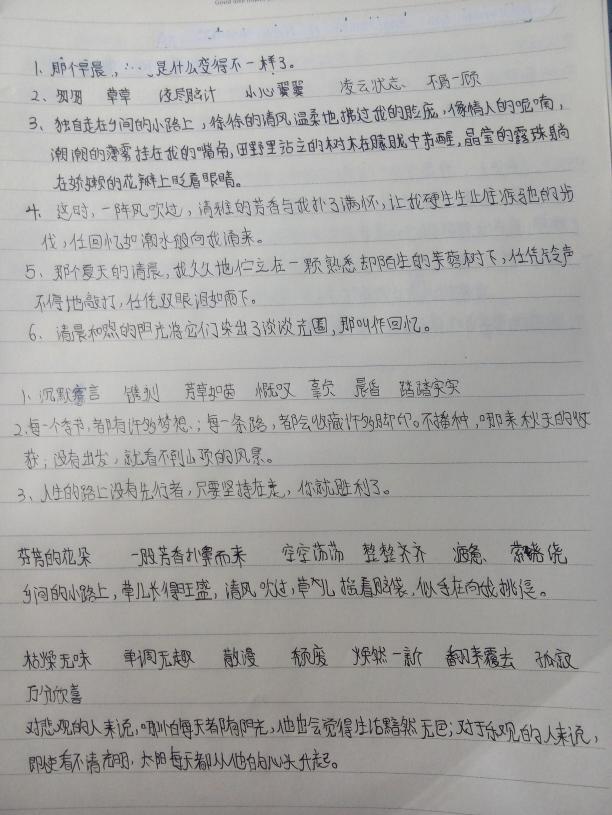 1、那个早晨，……是什么变得不一样了。
2、匆匆 草草 费尽脑汁 小心翼翼 凌云状志 不屑一顾
3、独自走在乡间的小路上，徐徐的清风温柔地拂过我的脸庞，像情人的呢喃，
潮潮的薄雾挂在我的嘴角，田野里站立的树木在朦胧中苏醒，晶莹的露珠躺
在娇嫩的花瓣上眨着眼睛。
4、这时，一阵风吹过，清雅的芳香与我扑了满怀，让我硬生生止住疾驰的步
伐，任回忆如潮水般向我涌来。
5、那个夏天的清晨，我久久地伫立在一颗熟悉却陌生的芙蓉树下，任凭铃声
不停地敲打，任凭双眼泪如雨下。
6、清晨和煦的阳光将它们染出了谈谈光圈，那叫作回忆。
1、沉默寡言 镌刻 芳草如茵 慨叹 辜负 晨昏 踏踏实实
2、每一个季节，都有许多梦想；每一条路，都会收藏许多脚印。不播种，哪来秋天的收
获；没有出发，就看不到山顶的风景。
3、人生的路上没有先行者，只要坚持在走，你就胜利了。
芬芳的花朵 一股芳香扑鼻而来 空空荡荡 整整齐齐 洒意 萦绕
乡间的小路上，草儿长得旺盛，清风吹过，草儿摇着脑袋，似乎在向我挑逗。
枯燥无味 单调无趣 散漫 颓废 焕然一新 翻来覆去 孤寂
万分欣喜
对悲观的人来说，哪怕每天都有阳光，他也会觉得生活黯然无色；对于乐观的人来说，
即使看不清前明，太阳每天都从他的心头升起。